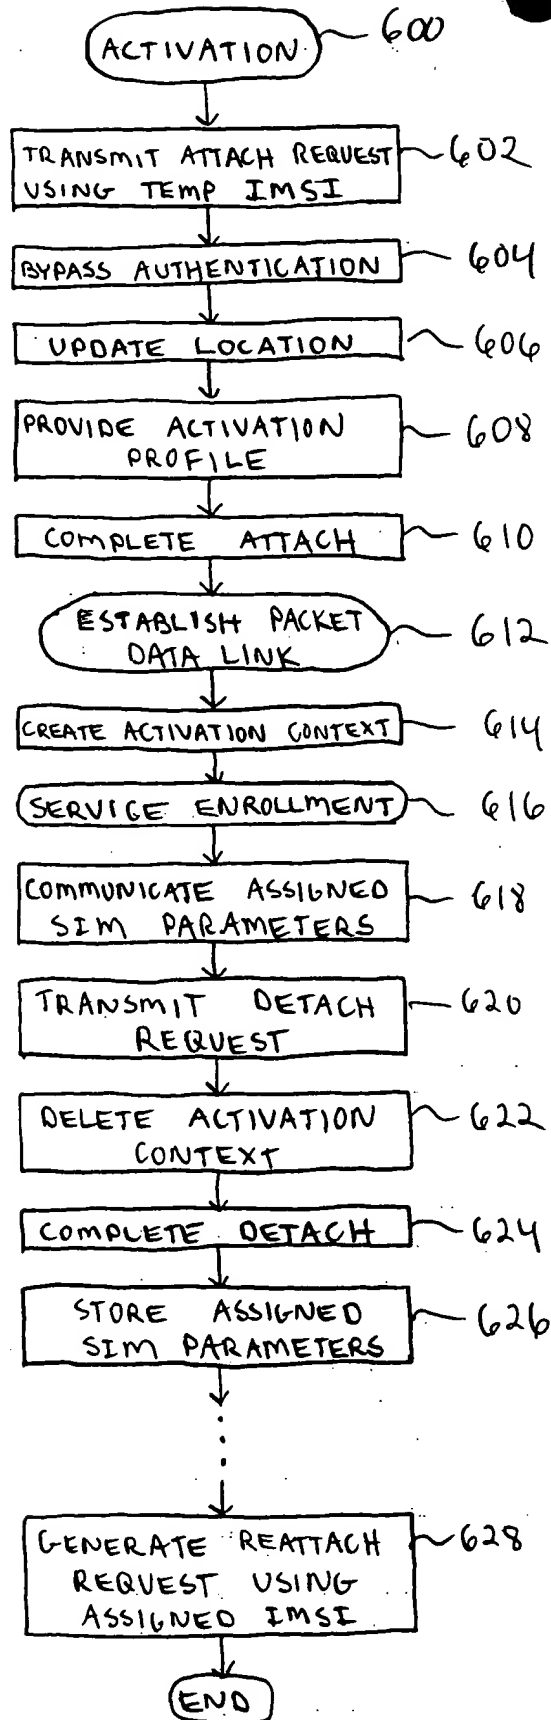 ACTIVATION 600
TRANSMIT ATTACH REQUEST 602
USING TEMP IMSI
BYPASS AUTHENTICATION 604
UPDATE LOCATION 606
PROVIDE ACTIVATION 608
PROFILE
COMPLETE ATTACH 610
ESTABLISH PACKET 612
DATA LINK
CREATE ACTIVATION CONTEXT 614
SERVICE ENROLLMENT 616
COMMUNICATE ASSIGNED 618
SIM PARAMETERS
TRANSMIT DETACH 620
REQUEST
DELETE ACTIVATION 622
CONTEXT
COMPLETE DETACH 624
STORE ASSIGNED 626
SIM PARAMETERS
GENERATE REATTACH 628
REQUEST USING
ASSIGNED IMSI
END